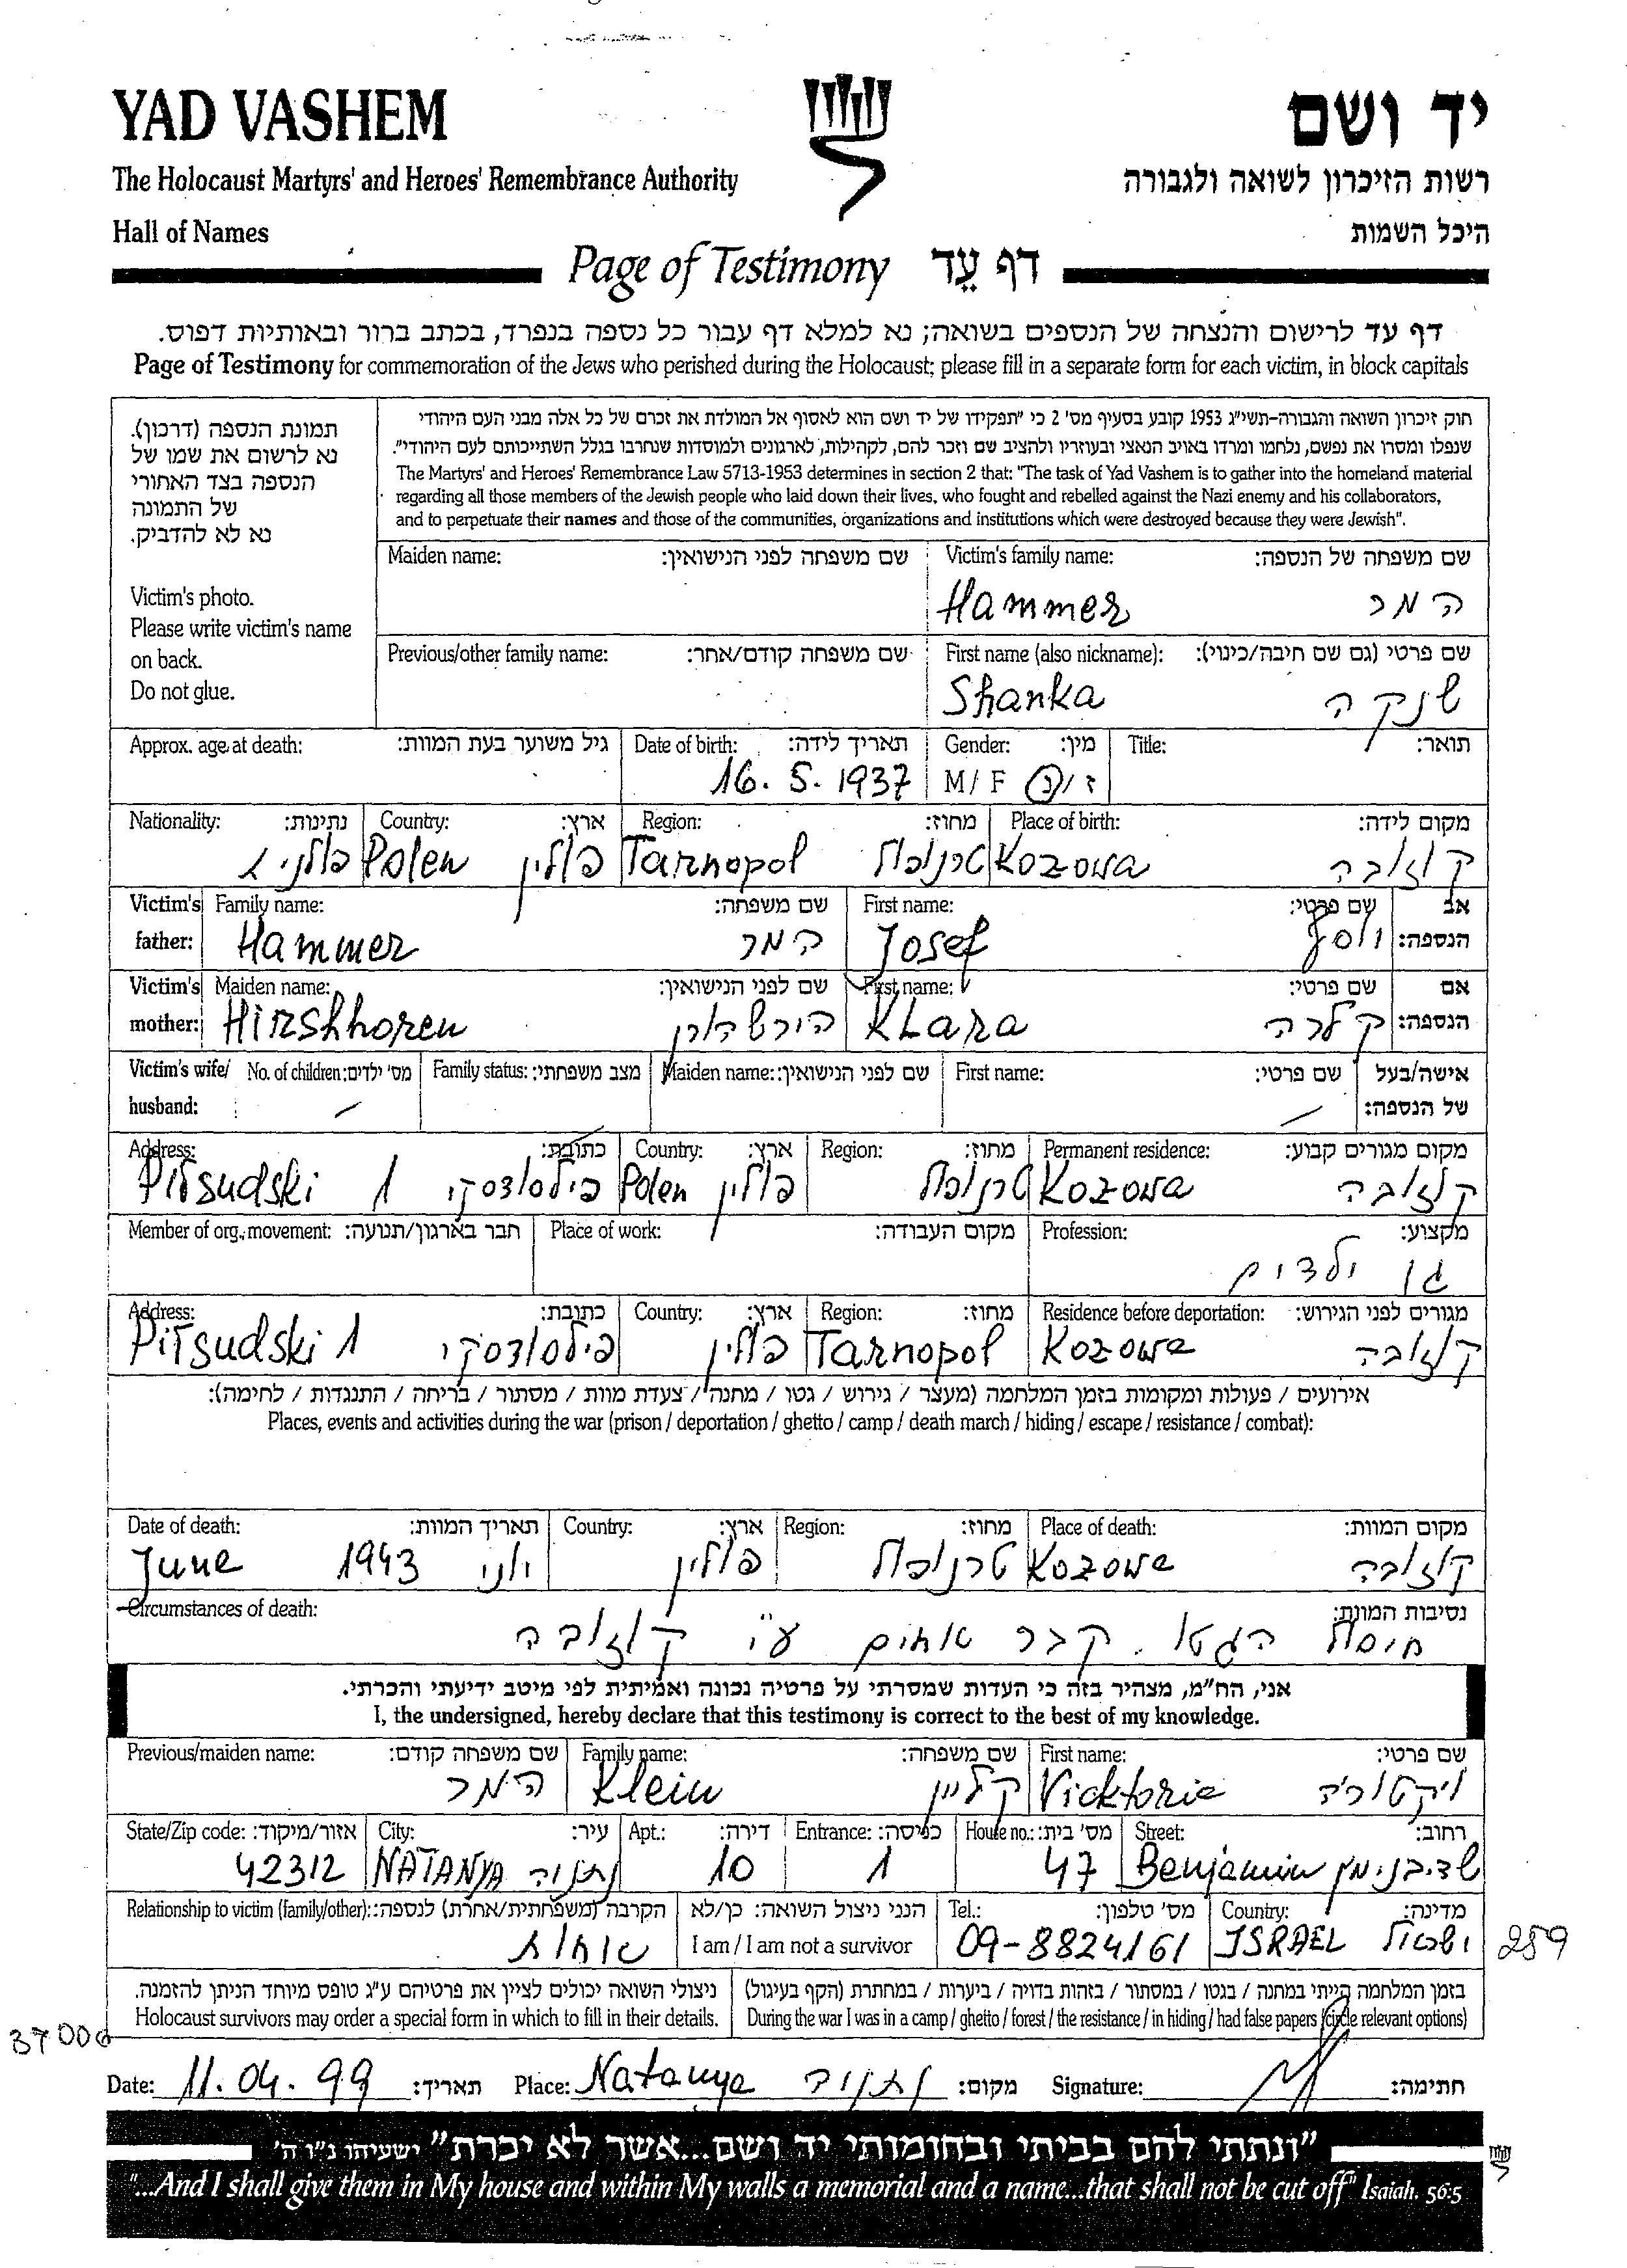 YAD VASHEM יד ושם
The Holocaust Martyrs' and Heroes' Remembrance Authority רשות הזיכרון לשואה ולגבורה
Hall of Names היכל השמות
Page of Testimony דף עֵד
דף עד לרישום והנצחה של הנספים בשואה; נא למלא דף עבור כל נספה בנפרד, בכתב ברור ובאותיות דפוס.
Page of Testimony for commemoration of the Jews who perished during the Holocaust; please fill in a separate form for each victim, in block capitals
תמונת הנספה (דרכון).
נא לרשום את שמו של
הנספה בצד האחורי
של התמונה
נא לא להדביק.
Victim's photo.
Please write victim's name
on back.
Do not glue.
חוק זיכרון השואה והגבורה-תשי"ג 1953 קובע בסעיף מס' 2 כי "תפקידו של יד ושם הוא לאסוף אל המולדת את זכרם של כל אלה מבני העם היהודי
שנפלו ומסרו את נפשם, נלחמו ומרדו באויב הנאצי ובעוזריו ולהציב שם וזכר להם, לקהילות, לארגונים ולמוסדות שנחרבו בגלל השתייכותם לעם היהודי".
The Martyrs' and Heroes' Remembrance Law 5713-1953 determines in section 2 that: "The task of Yad Vashem is to gather into the homeland material
regarding all those members of the Jewish people who laid down their lives, who fought and rebelled against the Nazi enemy and his collaborators,
and to perpetuate their names and those of the communities, organizations and institutions which were destroyed because they were Jewish".
Maiden name: שם משפחה לפני הנישואין: Victim's family name: שם משפחה של הנספה:
Hammer המר
Previous/other family name: שם משפחה קודם/אחר: First name (also nickname): שם פרטי (גם שם חיבה/כינוי):
Shanka שנקה
Approx. age at death: גיל משוער בעת המוות: Date of birth: תאריך לידה: Gender: מין: Title: תואר:
16. 5. 1937 M/ F ז/נ
Nationality: נתינות: Country: ארץ: Region: מחוז: Place of birth: מקום לידה:
Polen פולין Tarnopol טרנופול Kozowa קוזובה
Victim's father: Family name: שם משפחה: First name: שם פרטי: אב הנספה:
Hammer המר Josef יוסף
Victim's mother: Maiden name: שם לפני הנישואין: First name: שם פרטי: אם הנספה:
Hirshhoren הירשהורן Klara קלרה
Victim's wife/ husband: No. of children: מס' ילדים: Family status: מצב משפחתי: Maiden name: שם לפני הנישואין: First name: שם פרטי: אישה/בעל של הנספה:
Address: כתובת: Country: ארץ: Region: מחוז: Permanent residence: מקום מגורים קבוע:
Piłsudski 1 פילסודסקי Polen פולין טרנופול Kozowa קוזובה
Member of org./movement: חבר בארגון/תנועה: Place of work: מקום העבודה: Profession: מקצוע:
גן ילדים
Address: כתובת: Country: ארץ: Region: מחוז: Residence before deportation: מגורים לפני הגירוש:
Piłsudski 1 פילסודסקי פולין Tarnopol Kozowa קוזובה
אירועים / פעולות ומקומות בזמן המלחמה (מעצר / גירוש / גטו / מחנה / צעדת מוות / מסתור / בריחה / התנגדות / לחימה):
Places, events and activities during the war (prison / deportation / ghetto / camp / death march / hiding / escape / resistance / combat):
Date of death: תאריך המוות: Country: ארץ: Region: מחוז: Place of death: מקום המוות:
June 1943 יוני פולין טרנופול Kozowa קוזובה
Circumstances of death: נסיבות המוות:
חיסול הגטו. קבר אחים ע"י קוזובה
אני, הח"מ, מצהיר בזה כי העדות שמסרתי על פרטיה נכונה ואמיתית לפי מיטב ידיעתי והכרתי.
I, the undersigned, hereby declare that this testimony is correct to the best of my knowledge.
Previous/maiden name: שם משפחה קודם: Family name: שם משפחה: First name: שם פרטי:
המר Klein קליין Vicktoria ויקטוריה
State/Zip code: אזור/מיקוד: City: עיר: Apt.: דירה: Entrance: כניסה: House no.: מס' בית: Street: רחוב:
42312 NATANYA נתניה 10 1 47 Benjamin שד' בנימין
Relationship to victim (family/other): הקרבה (משפחתית/אחרת) לנספה: הנני ניצול השואה: כן/לא Tel.: מס' טלפון: Country: מדינה:
אחות I am / I am not a survivor 09-8824161 ISRAEL ישראל 259
ניצולי השואה יכולים לציין את פרטיהם ע"ג טופס מיוחד הניתן להזמנה.
Holocaust survivors may order a special form in which to fill in their details.
בזמן המלחמה הייתי במחנה / בגטו / במסתור / בזהות בדויה / ביערות / במחתרת (הקף בעיגול)
During the war I was in a camp / ghetto / forest / the resistance / in hiding / had false papers (circle relevant options)
Date: 11.04.99 תאריך: Place: Natanya נתניה מקום: Signature: חתימה:
"ונתתי להם בביתי ובחומותי יד ושם...אשר לא יכרת" ישעיהו נ"ו ה'
"...And I shall give them in My house and within My walls a memorial and a name...that shall not be cut off" Isaiah. 56:5